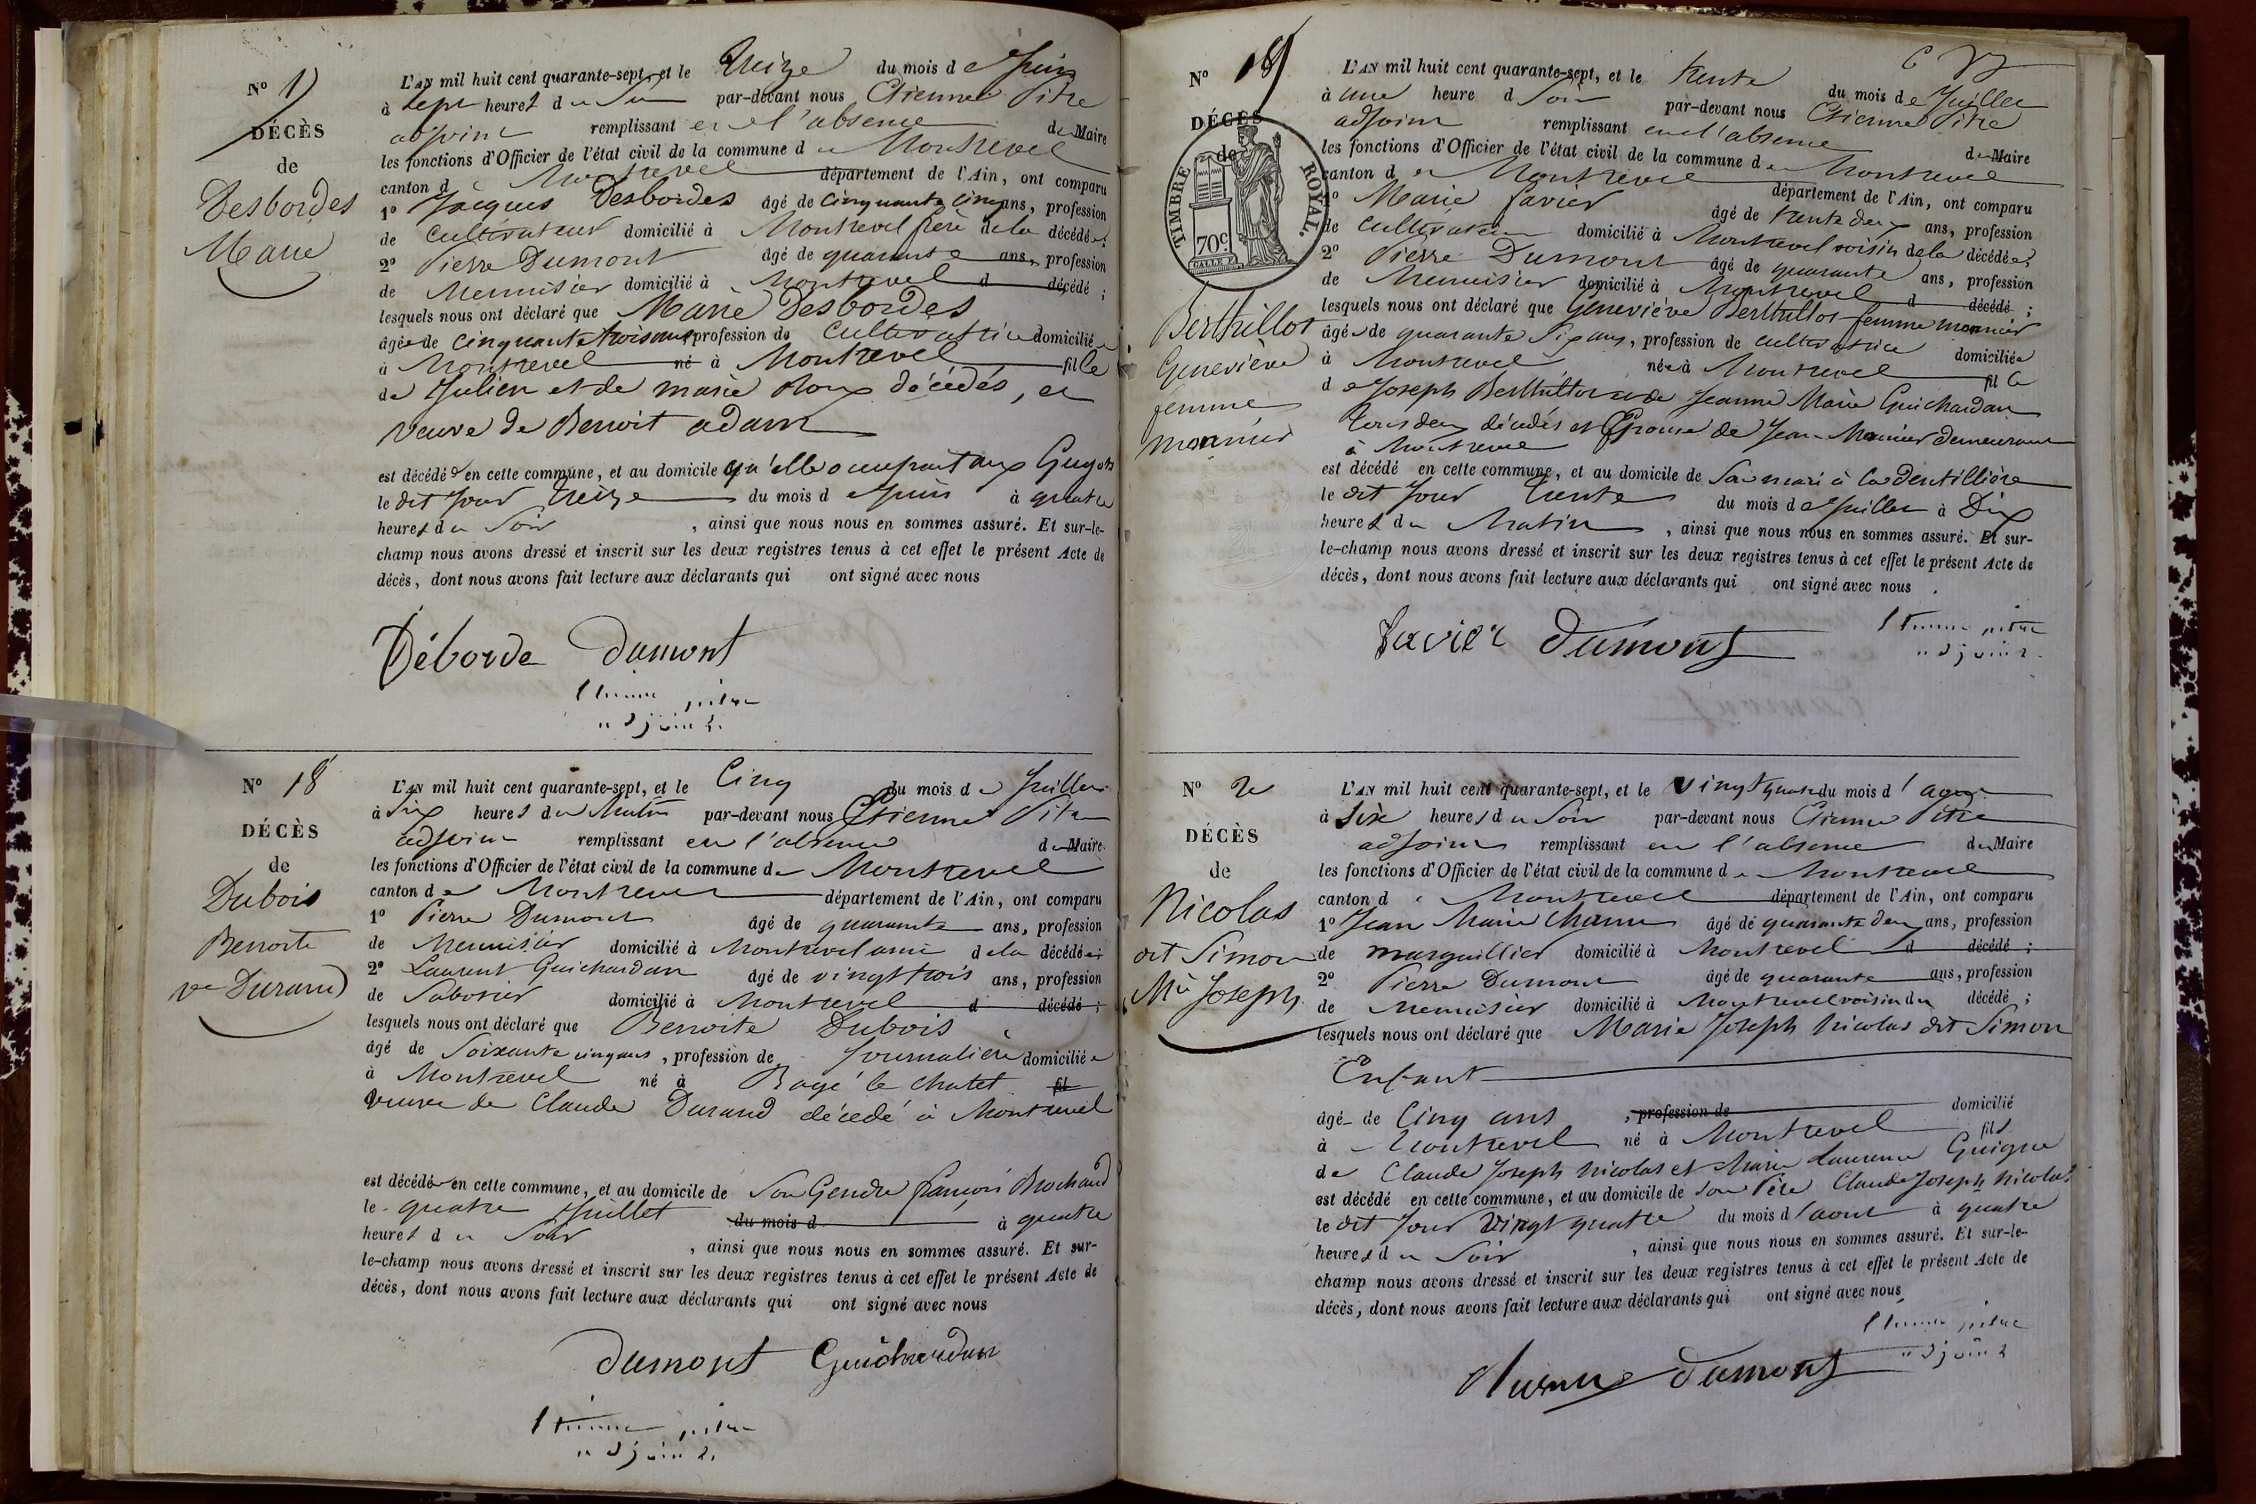 N° 17
DÉCÈS
de
Desbordes
Marie
L'AN mil huit cent quarante-sept, et le treize du mois de Juin
à sept heures du Soir par-devant nous Etienne Pitre
adjoint remplissant en l'absence du Maire
les fonctions d'Officier de l'état civil de la commune de Montrevel
canton de Montrevel département de l'Ain, ont comparu
1° Jacques Desbordes âgé de cinquante cinq ans, profession
de cultivateur domicilié à Montrevel frère de la décédée;
2° Pierre Dumont âgé de quarante ans, profession
de Menuisier domicilié à Montrevel d décédé ;
lesquels nous ont déclaré que Marie Desbordes
âgée de cinquante trois ans profession de cultivatrice domiciliée
à Montrevel né à Montrevel fille
de Julien et de marie Roux décédés, et
veuve de Benoit adam
est décédée en cette commune, et au domicile qu'elle occupait aux Guyots
le dit jour treize du mois de Juin à quatre
heures du Soir , ainsi que nous nous en sommes assuré. Et sur-le-
champ nous avons dressé et inscrit sur les deux registres tenus à cet effet le présent Acte de
décès, dont nous avons fait lecture aux déclarants qui ont signé avec nous
Déborde Dumont
Etienne pitre
adjoint
N° 18
DÉCÈS
de
Dubois
Benoite
ve Durand
L'AN mil huit cent quarante-sept, et le Cinq du mois de Juillet
à Six heures du Matin par-devant nous Etienne Pitre
adjoint remplissant en l'absence du Maire
les fonctions d'Officier de l'état civil de la commune de Montrevel
canton de Montrevel département de l'Ain, ont comparu
1° Pierre Dumont âgé de quarante ans, profession
de Menuisier domicilié à Montrevel ami de la décédée;
2° Laurent Guichardan âgé de vingt trois ans, profession
de Sabotier domicilié à Montrevel d décédé ;
lesquels nous ont déclaré que Benoite Dubois
âgé de Soixante cinq ans , profession de Journalière domiciliée
à Montrevel né à Bagé le chatel fil
veuve de Claude Durand décédé à Montrevel
est décédée en cette commune, et au domicile de Son Gendre françois Brochand
le quatre Juillet du mois d à quatre
heures du Soir , ainsi que nous nous en sommes assuré. Et sur-
le-champ nous avons dressé et inscrit sur les deux registres tenus à cet effet le présent Acte de
décès, dont nous avons fait lecture aux déclarants qui ont signé avec nous
dumont Guichardan
Etienne pitre
adjoint
N° 19
DÉCÈS
de
TIMBRE ROYAL.
70c
Berthillot
Geneviève
femme
monnier
L'AN mil huit cent quarante-sept, et le trente du mois de Juillet
à une heure d Soir par-devant nous Etienne Pitre
adjoint remplissant en l'absence du Maire
les fonctions d'Officier de l'état civil de la commune de Montrevel
canton de Montrevel département de l'Ain, ont comparu
1° Marie favier âgé de trente deux ans, profession
de cultivateur domicilié à Montrevel voisin de la décédée;
2° Pierre Dumont âgé de quarante ans, profession
de Menuisier domicilié à Montrevel d décédé ;
lesquels nous ont déclaré que Geneviève Berthillot femme monnier
âgée de quarante Six ans, profession de cultivatrice domiciliée
à Montrevel née à Montrevel fille
de Joseph Berthillot et de Jeanne Marie Guichardan
tous deux décédés et Epouse de Jean Monnier demeurant
à Montrevel
est décédé en cette commune, et au domicile de Son mari à la Dentillière
le dit jour trente du mois de Juillet à Dix
heures du Matin , ainsi que nous nous en sommes assuré. Et sur-
le-champ nous avons dressé et inscrit sur les deux registres tenus à cet effet le présent Acte de
décès, dont nous avons fait lecture aux déclarants qui ont signé avec nous
Favier Dumont
Etienne pitre
adjoint
N° 20
DÉCÈS
de
Nicolas
dit Simon
Mie Joseph
L'AN mil huit cent quarante-sept, et le vingt quatre du mois d'aout
à Six heures du Soir par-devant nous Etienne Pitre
adjoint remplissant en l'absence du Maire
les fonctions d'Officier de l'état civil de la commune de Montrevel
canton de Montrevel département de l'Ain, ont comparu
1° Jean Marie âgé de quarante deux ans, profession
de marguillier domicilié à Montrevel d décédé ;
2° Pierre Dumont âgé de quarante ans, profession
de Menuisier domicilié à Montrevel voisin du décédé ;
lesquels nous ont déclaré que Marie Joseph Nicolas dit Simon
Enfant
âgé de Cinq ans , profession de domicilié
à Montrevel né à Montrevel fils
de Claude Joseph Nicolas et Marie Laurence Guigue
est décédé en cette commune, et au domicile de Son Père Claude Joseph Nicolas
le dit jour vingt quatre du mois d'aout à quatre
heures du Soir , ainsi que nous nous en sommes assuré. Et sur-le-
champ nous avons dressé et inscrit sur les deux registres tenus à cet effet le présent Acte de
décès, dont nous avons fait lecture aux déclarants qui ont signé avec nous
Etienne pitre
adjoint
Dumont